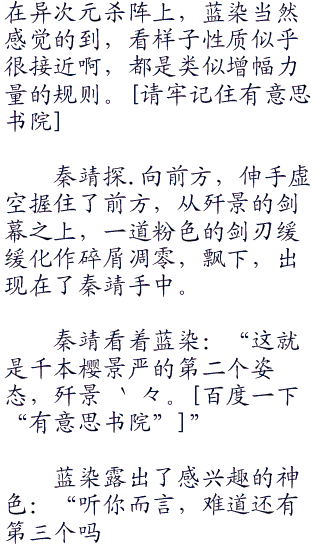 在异次元杀阵上，蓝染当然
感觉的到，看样子性质似乎
很接近啊，都是类似增幅力
量的规则。[请牢记住有意思
书院]
秦靖探.向前方，伸手虚
空握住了前方，从歼景的剑
幕之上，一道粉色的剑刃缓
缓化作碎屑凋零，飘下，出
现在了秦靖手中。
秦靖看着蓝染：“这就
是千本樱景严的第二个姿
态，歼景 丶 々。[百度一下
“有意思书院”]”
蓝染露出了感兴趣的神
色：“听你而言，难道还有
第三个吗